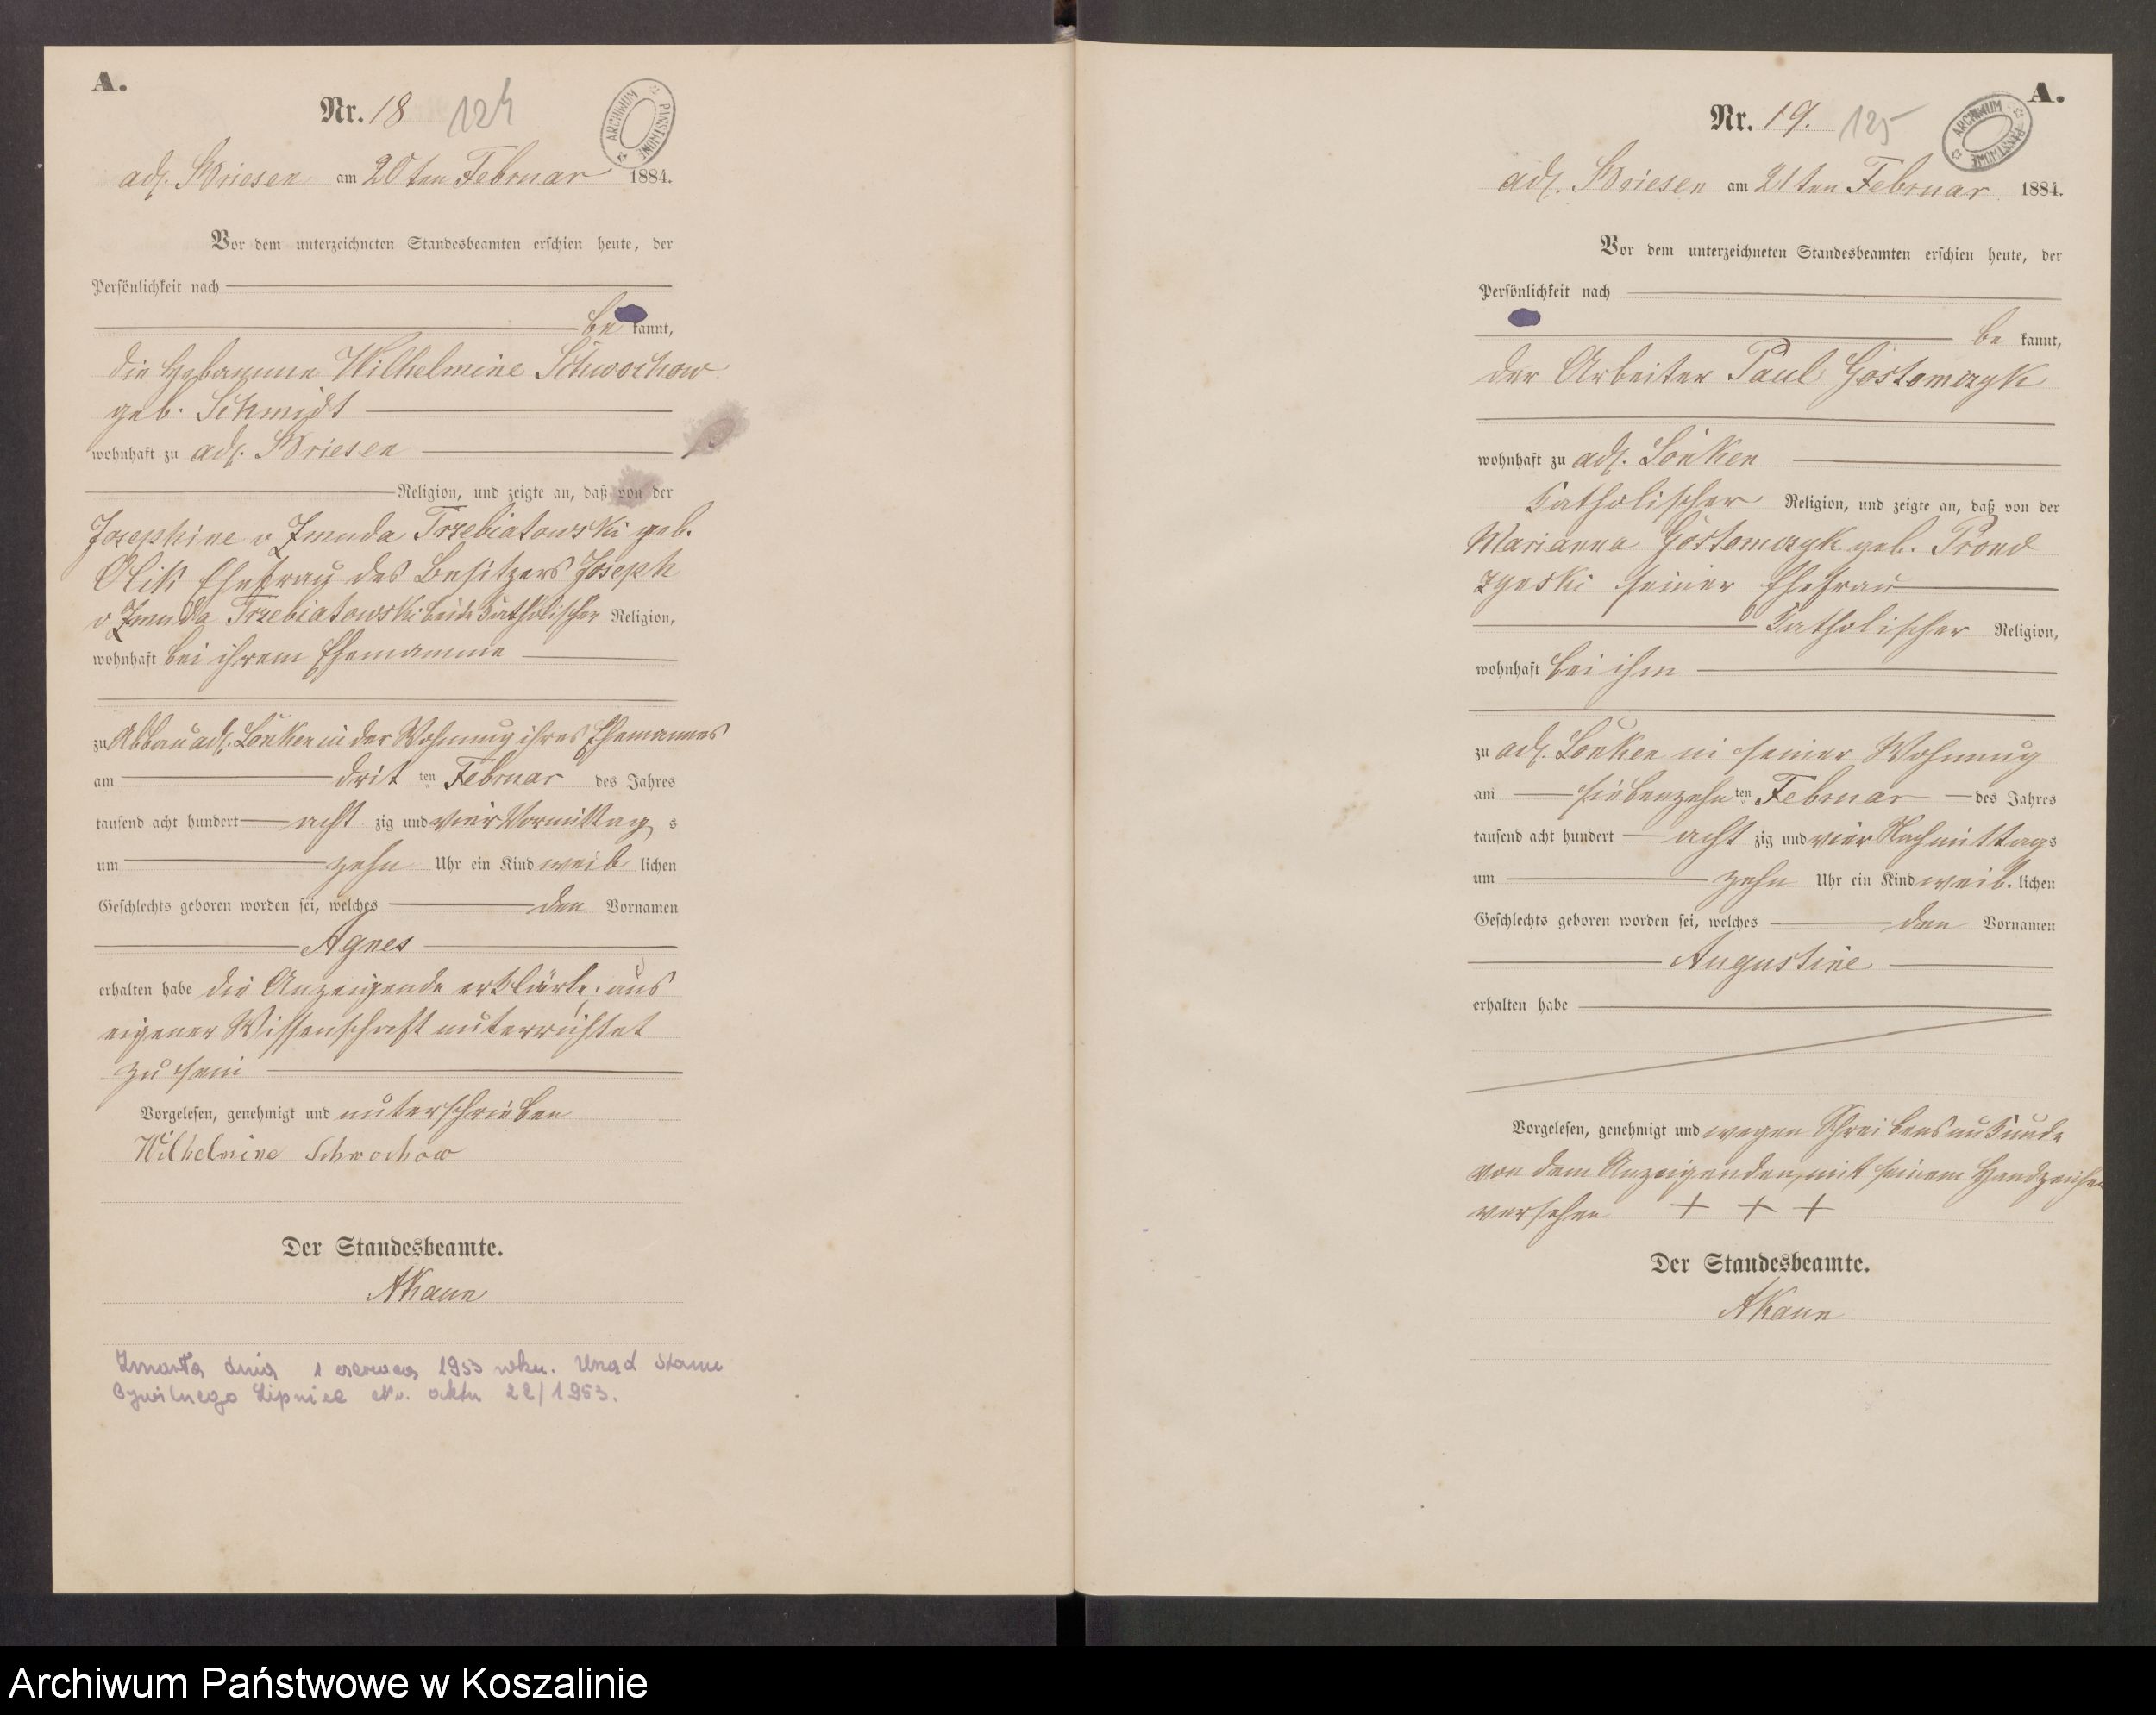 A.
Nr. 18 124
ARCHIWUM PAŃSTWOWE
adl. Briesen am 20ten Februar 1884.
Vor dem unterzeichneten Standesbeamten erschien heute, der
Persönlichkeit nach
be kannt,
die Hebamme Wilhelmine Schwochow
geb. Schmidt
wohnhaft zu adl. Briesen
Religion, und zeigte an, daß von der
Josephine v Zmuda Trzebiatowski geb.
Olik Ehefrau des Besitzers Joseph
v Zmuda Trzebiatowski beide Katholischer Religion,
wohnhaft bei ihrem Ehemanne
zu Abbau adl. Lonken in der Wohnung ihres Ehemannes
am drit ten Februar des Jahres
tausend acht hundert acht zig und vier Vormittag s
um zehn Uhr ein Kind weib lichen
Geschlechts geboren worden sei, welches den Vornamen
Agnes
erhalten habe die Anzeigende erklärte, aus
eigener Wissenschaft unterrichtet
zu sein
Vorgelesen, genehmigt und unterschrieben
Wilhelmine Schwochow
Der Standesbeamte.
AKaun
Zmarła dnia 1 czerwca 1953 roku. Urząd Stanu
Cywilnego Lipnice Nr. aktu 22/1953.
A.
Nr. 19. 125
ARCHIWUM PAŃSTWOWE
adl. Briesen am 21ten Februar 1884.
Vor dem unterzeichneten Standesbeamten erschien heute, der
Persönlichkeit nach
be kannt,
der Arbeiter Paul Gostomczyk
wohnhaft zu adl. Lonken
Katholischer Religion, und zeigte an, daß von der
Marianna Gostomczyk geb. Prond
zynski seiner Ehefrau
Katholischer Religion,
wohnhaft bei ihm
zu adl. Lonken in seiner Wohnung
am siebenzehn ten Februar des Jahres
tausend acht hundert acht zig und vier Nachmittags
um zehn Uhr ein Kind weib. lichen
Geschlechts geboren worden sei, welches den Vornamen
Augustine
erhalten habe
Vorgelesen, genehmigt und wegen Schreibensunkunde
von dem Anzeigenden, mit seinem Handzeichen
versehen + + +
Der Standesbeamte.
AKaun
Archiwum Państwowe w Koszalinie